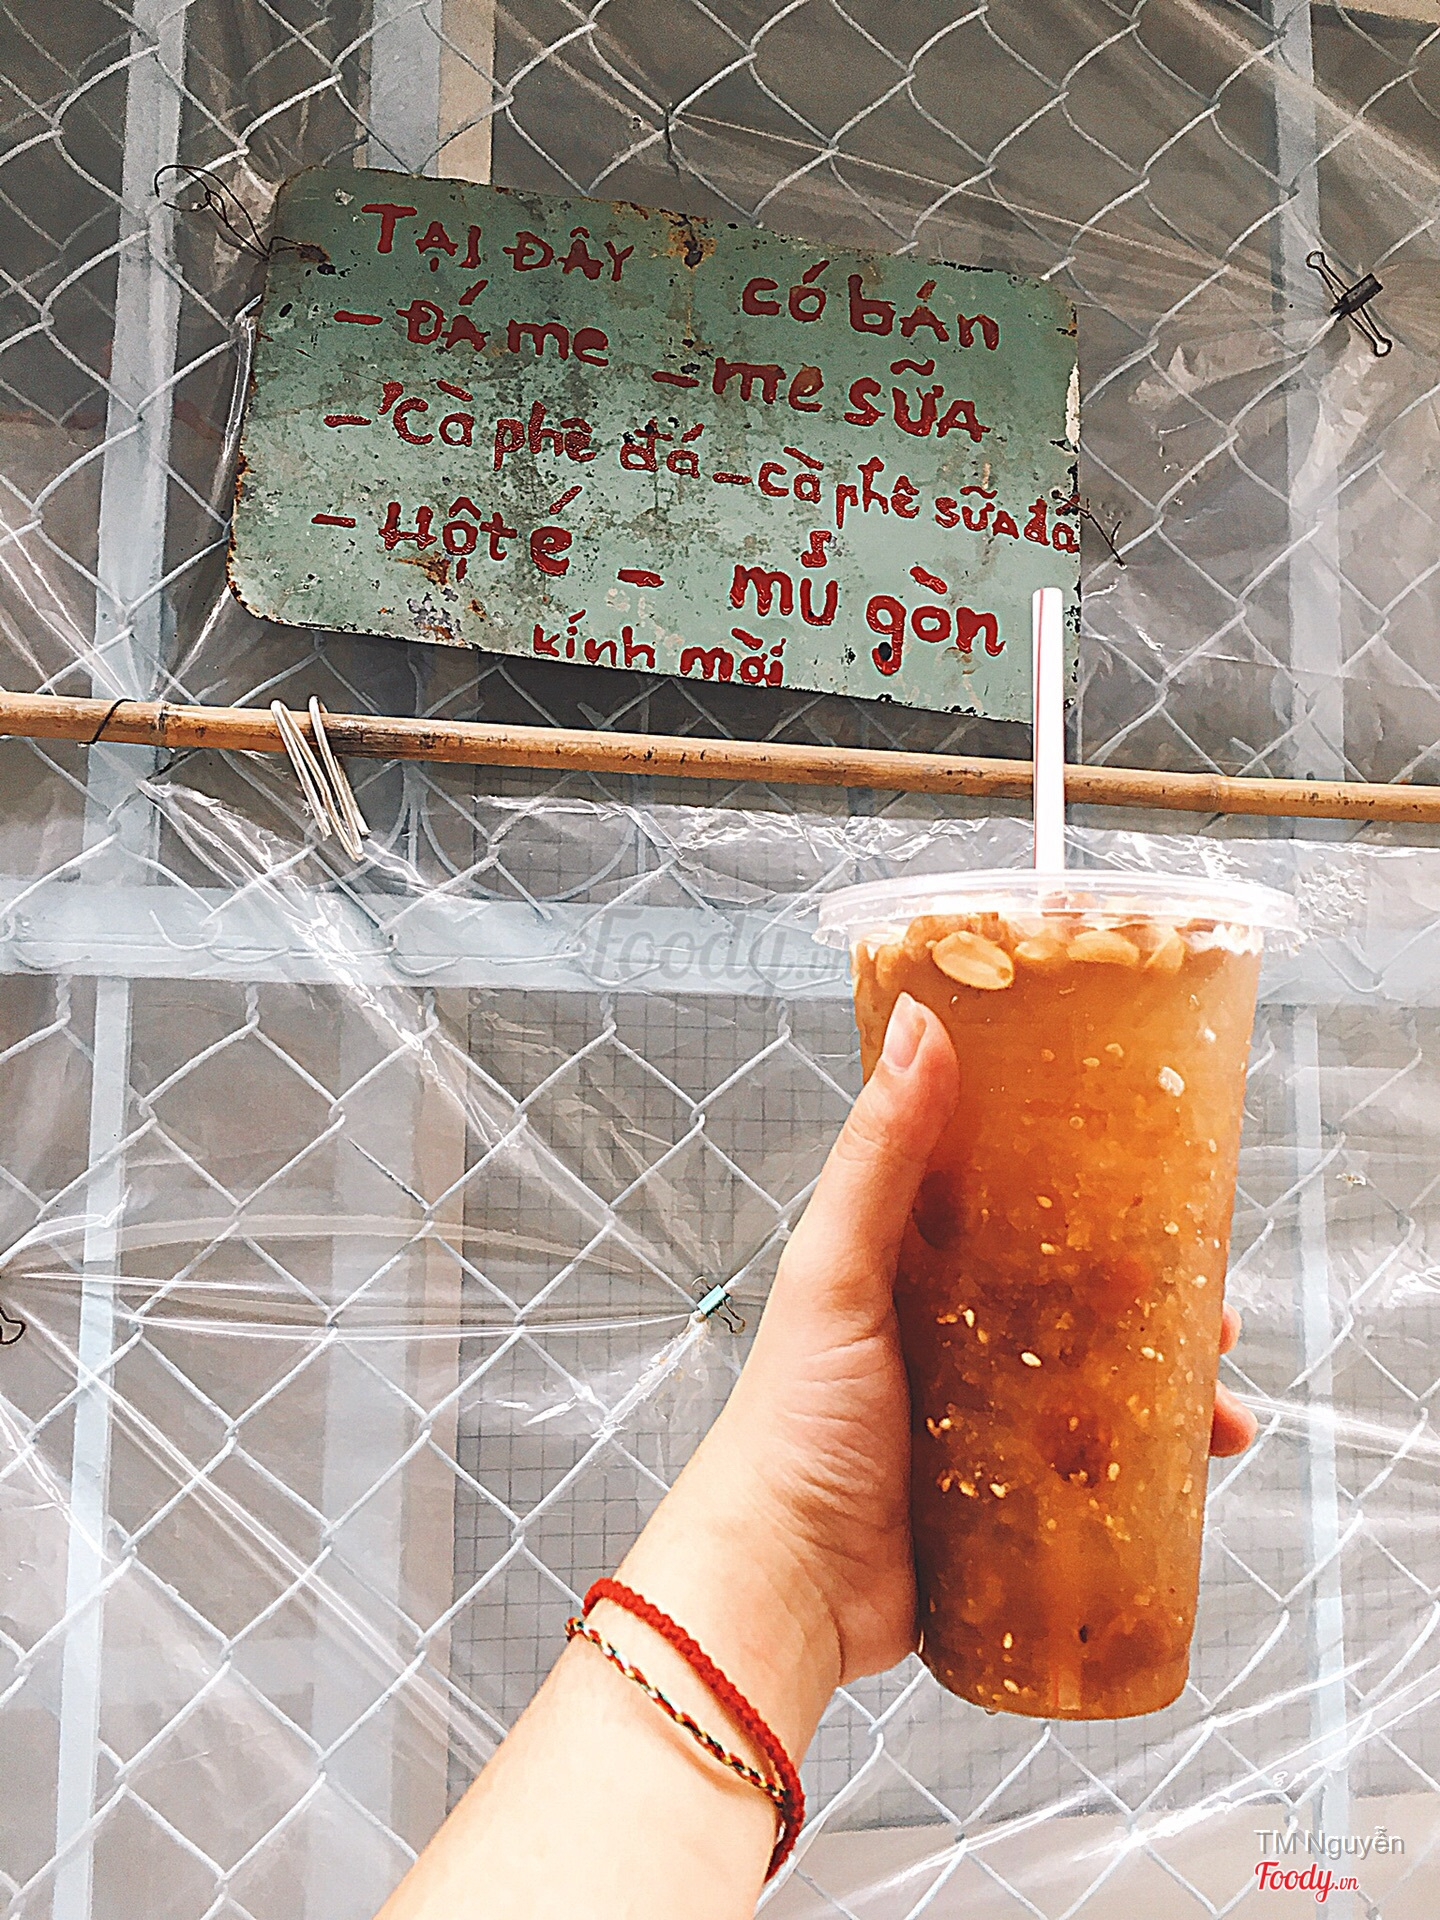 TẠI ĐÂY có bán
- ĐÁ me - me sữa
- Cà phê đá - cà phê sữa đá
- Hột é - mủ gòn
kính mời
Foody.vn
TM Nguyễn
Foody.vn